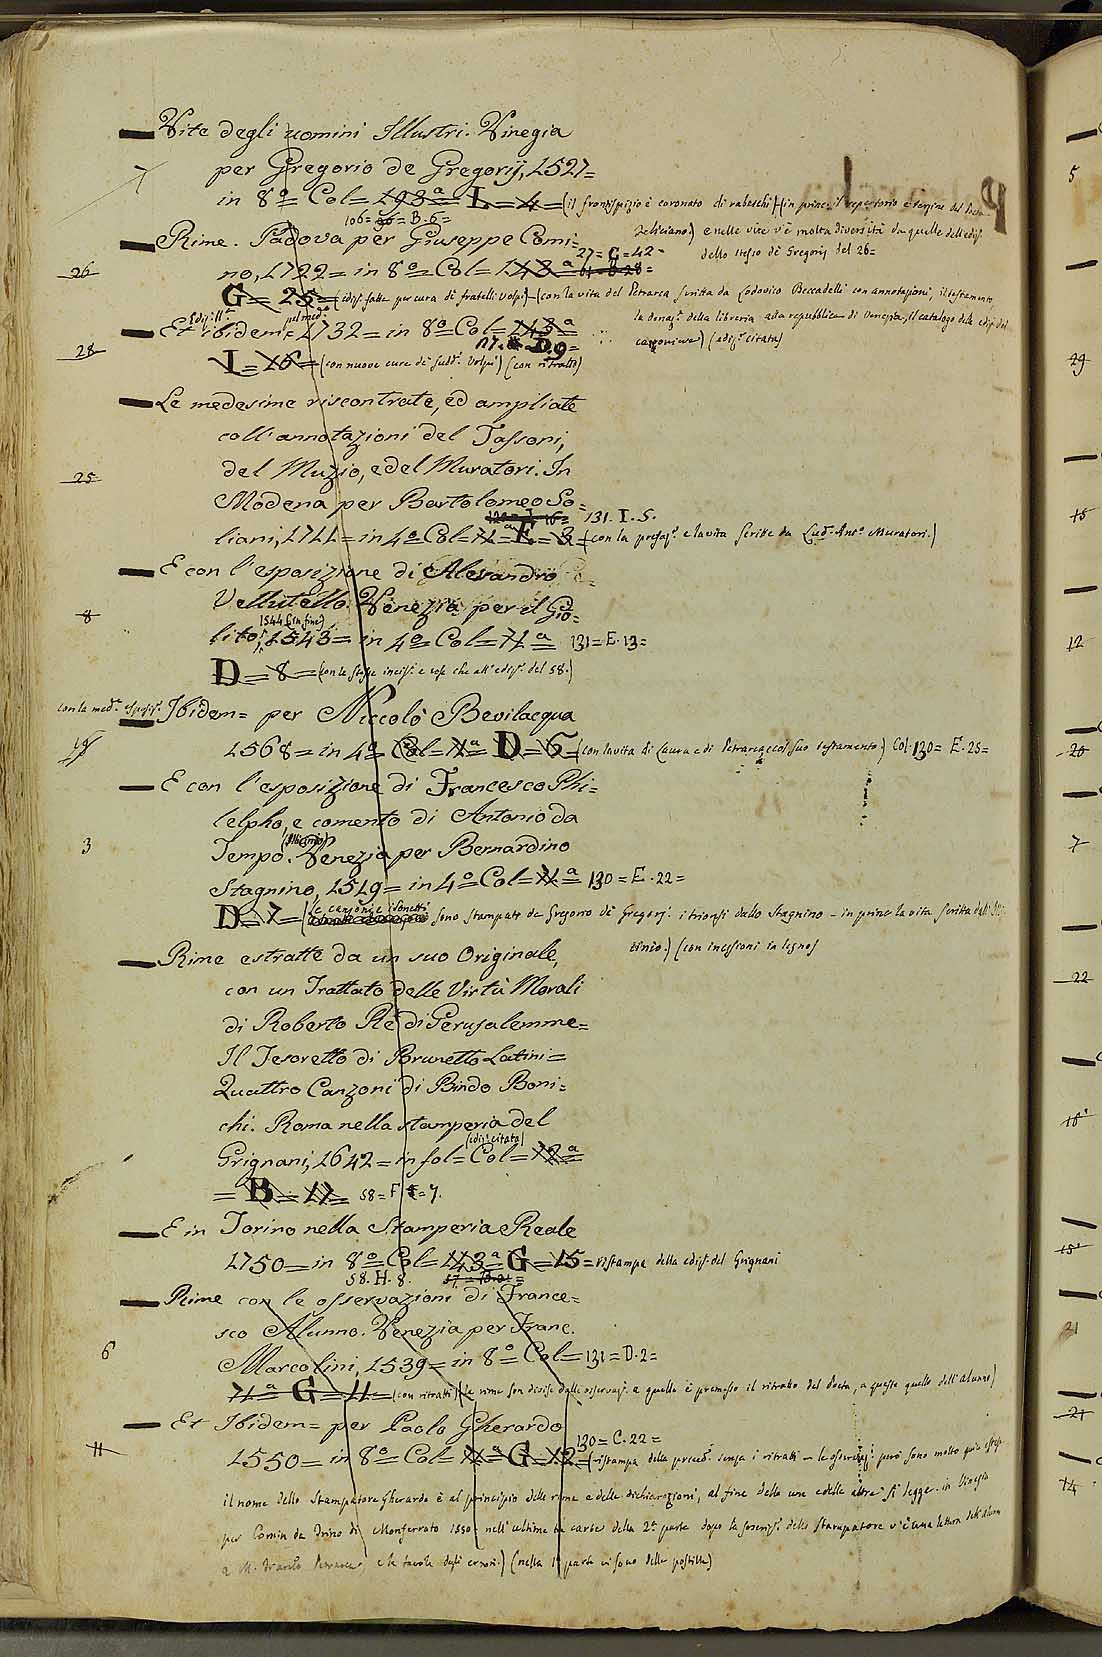 Vite degli uomini Illustri. Vinegia
per Gregorio de Gregorij, 1527=
in 8º= Col= 193ª= L= 4= (il frontispizio è coronato di rabeschi) (in princ. il repertorio e
106= B. 6=
e nelle vite v'è molta diversità da quelle dell'ediz.
dello stesso de Gregorij del 26=
Rime. Padova per Giuseppe Comi=
27= G= 42=
26
no, 1722= in 8º= Col= 143ª
G= 25= (ediz. fatta per cura di fratelli Volpi) (con la vita del Petrarca scritta da Lodovico Beccadelli con annotazioni, il testamento,
la donaz. della libreria alla repubblica di Venezia, il catalogo delle ediz. del
canzoniere) (ediz. citata)
Et ibidem, 1732= in 8º= Col= 143ª
28
I= 16= (con nuove cure de' sudd. Volpi) (con ritratto)
Le medesime riscontrate, ed ampliate
coll'annotazioni del Tassoni,
del Muzio, e del Muratori. In
25
Modena per Bartolomeo So=
131. I. 5.
liani, 1711= in 4º Col= 71ª= E= 3= (con la prefaz. e la vita scritte da Lud. Ant. Muratori.)
E con l'esposizione di Alesandro
Vellutello. Venezia per il Gio=
8
1544 (in fine)
lito, 1543= in 4º= Col= 71ª= 131= E. 13=
D= 8= (con le stesse inciz. e cose che all'ediz. del 58.)
con la med. esposiz. Ibidem= per Niccolò Bevilacqua
19
1568= in 4º Col= 71ª= D= 6= (con la vita di Laura e di Petrarca, ecol suo testamento.) Col. 130= E. 25=
E con l'esposizione di Francesco Phi=
lelpho, e comento di Antonio da
3
Tempo. Venezia per Bernardino
Stagnino, 1519= in 4º= Col= 71ª= 130= E. 22=
D= 7= (le canzoni e i sonetti sono stampate da Gregorio de' Gregorj. i trionfi dallo Stagnino - in princ. la vita scritta
(con incisioni in legno)
Rime estratte da un suo Originale,
con un Trattato delle Virtù Morali
di Roberto Rè di Gerusalemme=
Il Tesoretto di Brunetto Latini=
Quattro Canzoni di Bindo Boni=
chi. Roma nella stamperia del
(ediz. citata)
Grignani, 1642= in fol= Col= 72ª=
= B= 17= 58= F= 7.
E in Torino nella Stamperia Reale
1750= in 8º= Col= 143ª= G= 15= ristampa della ediz. del Grignani
58. H. 8.
Rime con le osservazioni di France=
sco Alunno. Venezia per Franc.
6
Marcolini, 1539= in 8º= Col= 131= D. 2=
71ª= G= 11= (con ritratti) (le rime son divise dalle osservaz. a quelle è premesso il ritratto del Poeta, a queste quello dell'Alunno)
Et Ibidem= per Paolo Gherardo
130= C. 22=
11
1550= in 8º= Col= 71ª= G= 12= (ristampa della preced. senza i ritratti - le osservaz. però sono molto più
il nome dello Stampatore Gherardo è al principio delle rime e delle dichiarazioni, al fine delle une e delle altre si legge: in Vinegia
per Comin da Trino di Monferrato 1550. nell'ultime carte della 2ª parte dopo la soscriz. dello stampatore v'è una lettera dell'Alunno
e la tavola degli errori.) (nella 1ª parte vi sono delle postille)
5
29
15
12
20
7
22
18
15
21
21
14